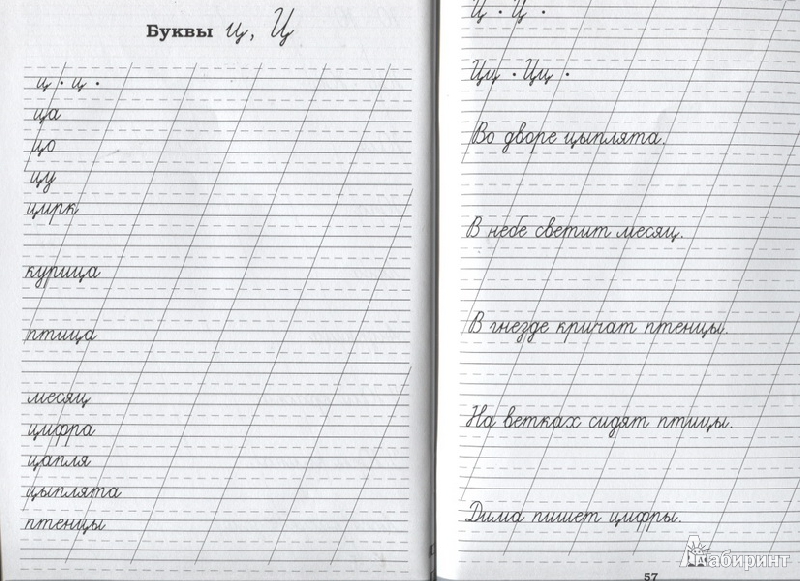 Буквы ц, Ц
ц · ц ·
ца
цо
цу
цирк
курица
птица
месяц
цифра
цапля
цыплята
птенцы
Ц · Ц ·
Цц · Цц ·
Во дворе цыплята.
В небе светит месяц.
В гнезде кричат птенцы.
На ветках сидят птицы.
Дима пишет цифры.
57
Лабиринт